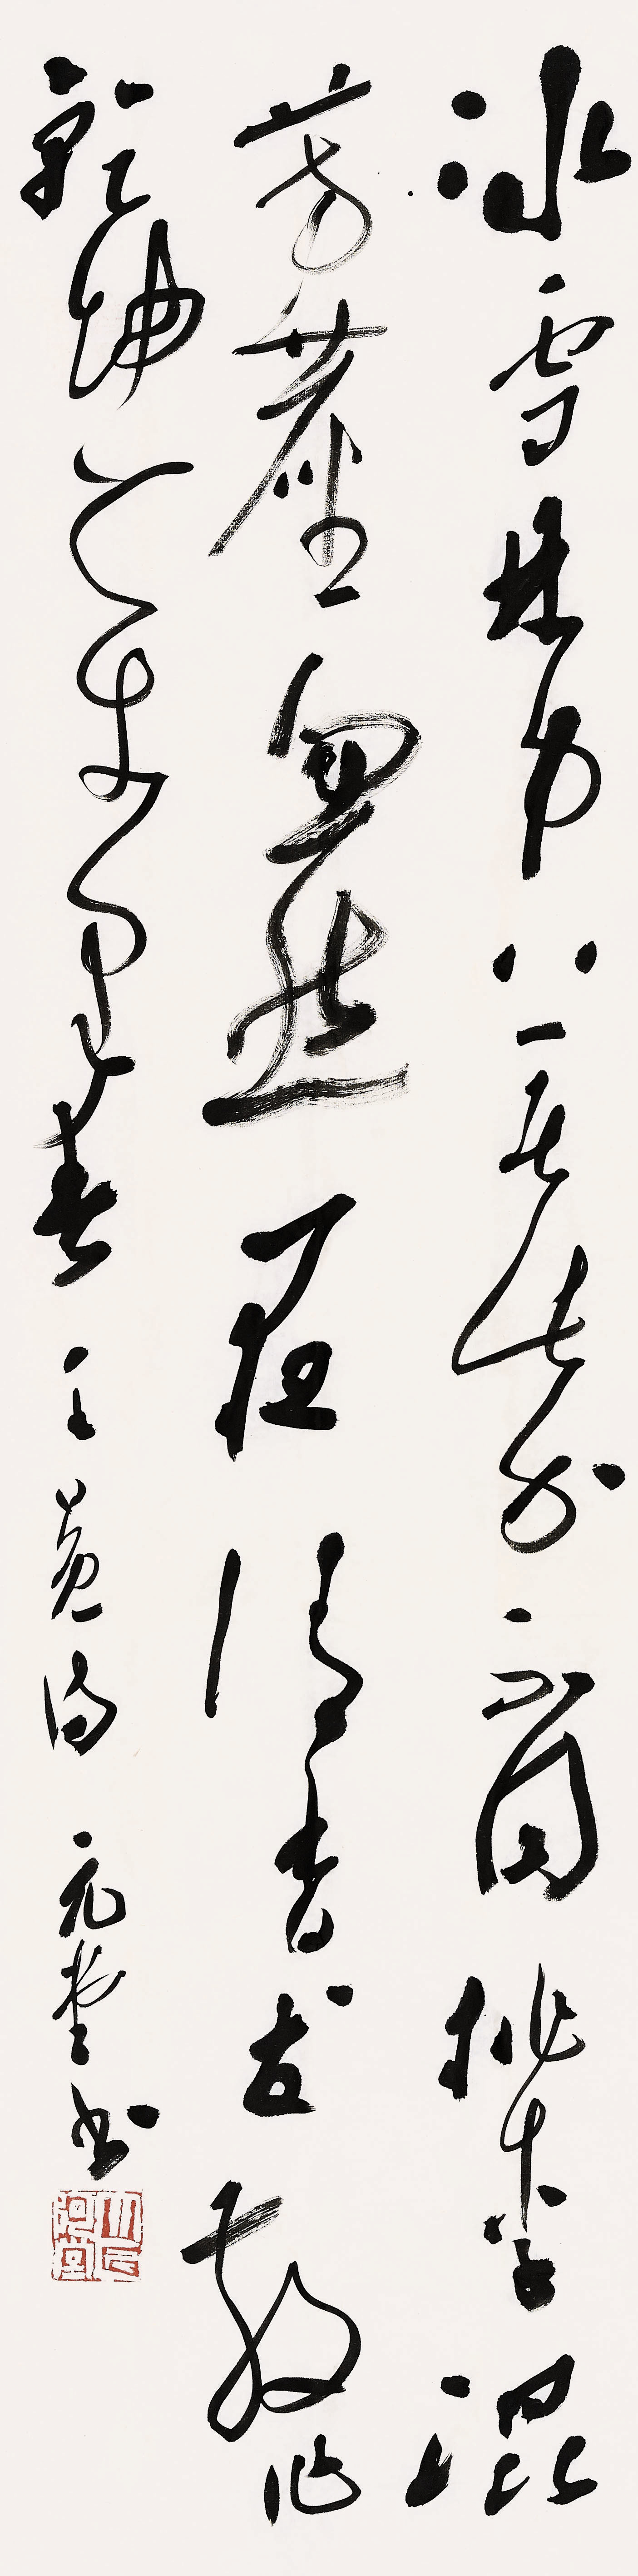 冰雪林中著此身不同桃李混
芳塵忽然一夜清香发散作
乾坤萬里春 王冕詩 元 书